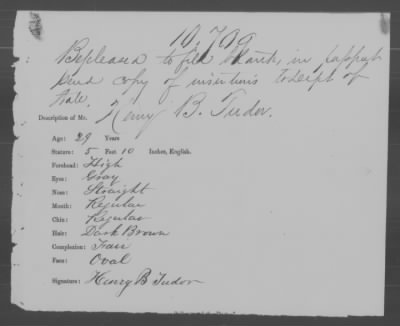 10,799
Be pleased to fill blanks, in passport
send copy of insertions & receipt of
Henry B. Tudor.
Description of Mr.
Age: 29 Years
Stature: 5 Feet 10 Inches, English.
Forehead: High
Eyes: Gray
Nose: Straight
Mouth: Regular
Chin: Regular
Hair: Dark Brown
Complexion: Fair
Face: Oval
Signature: Henry B Tudor